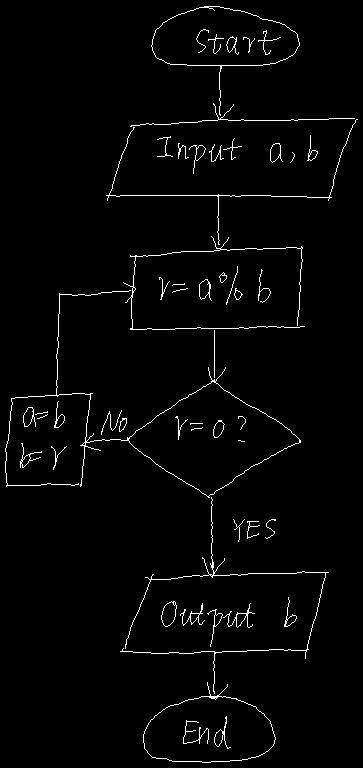 Start
Input a, b
r = a % b
r = 0 ?
No
a = b
b = r
YES
Output b
End